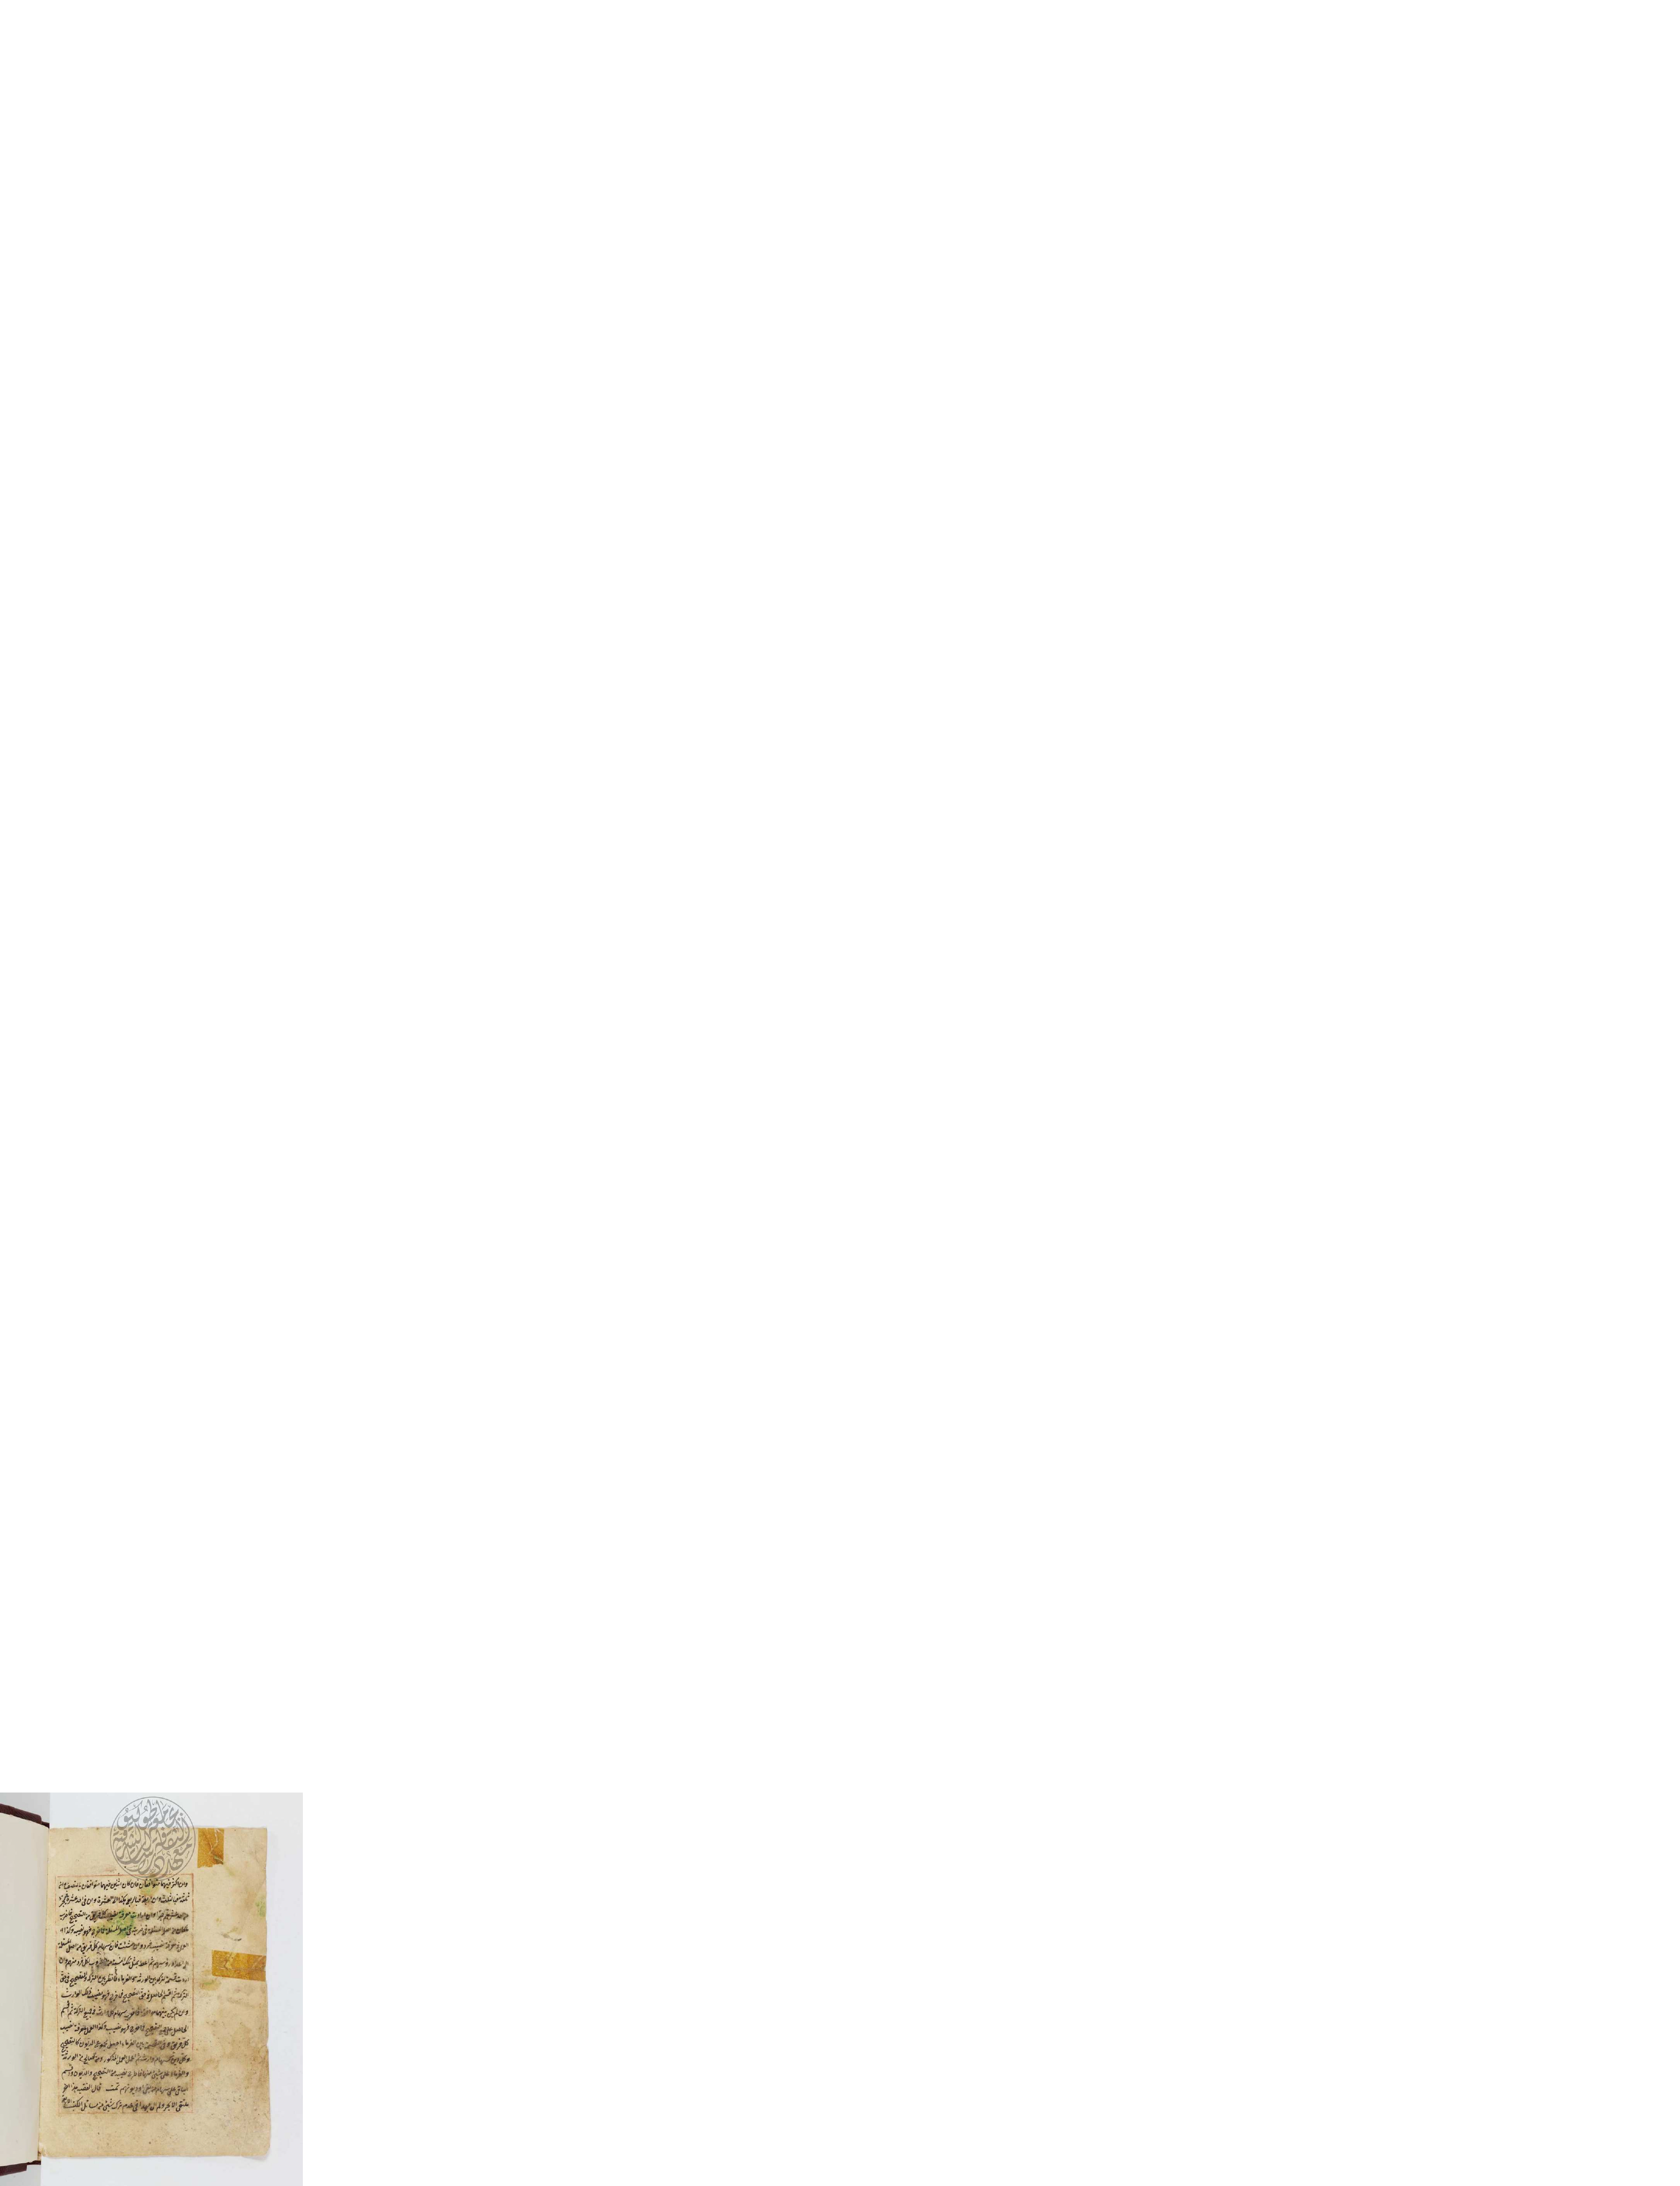 وان كثر فيهما متوافقان فان كان اثنين فيهما متوافقان بالنصف وان
ثلثة فبالثلث وان اربعة فبالربع هكذا الى العشرة وان في احد عشر
احد عشر هكذا وان اردت معرفة نصيب كل فريق من التصحيح فاضرب
ما كان له من اصل المسئلة في ما ضربته في اصل المسئلة فما خرج فهو نصيبه وكذا
معرفة نصيب كل فرد وان شئت فانسب سهام كل فريق من اصل المسئلة
الى عدد رؤسهم ثم اعط بمثل تلك النسبة من المضروب لكل فرد منهم وان
اردت قسمة التركة بين الورثة والغرماء فانظر بين التركة والتصحيح
التركة ثم اقسم الحاصل وفق التصحيح فما خرج فهو نصيب ذلك الوارث
وان لم يكن بينهما موافقة فاضرب سهام كل وارث في جميع التركة ثم اقسم
الحاصل على جميع التصحيح فما خرج فهو نصيبه وكذا العمل لمعرفة نصيب
كل فريق وفي القسمة بين الغرماء اجعل مجموع الديون كالتصحيح
وكل دين كسهام وارث ثم اعمل العمل المذكور ومن صالح من الورثة
والغرماء على شيء منها فاطرحه نصيبه من التصحيح والديون واقسم
الباقي على سهام من بقي او ديونهم تمت قال الفقير هذا اخر
ملتقى الابحر ولم آل جهدا في عدم ترك شيء من مسائل الكتب